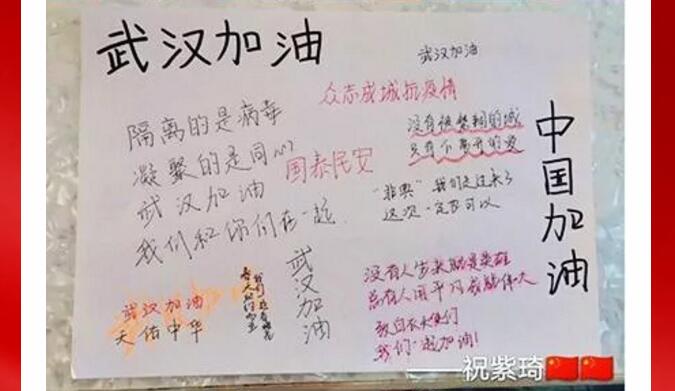 武汉加油
武汉加油
众志成城抗疫情
隔离的是病毒
凝聚的是同心
武汉加油
我们和你们在一起
国泰民安
没有被禁锢的城
只有不离开的爱
"非典"我们走过来了
这次一定also可以
中国加油
武汉加油
武汉加油
天佑中华
没有人生来就是英雄
总有人用平凡成就伟大
致白衣天使们
我们一起加油!
祝紫琦